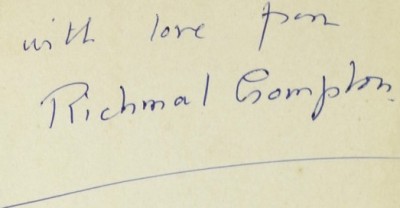 with love from
Richmal Crompton